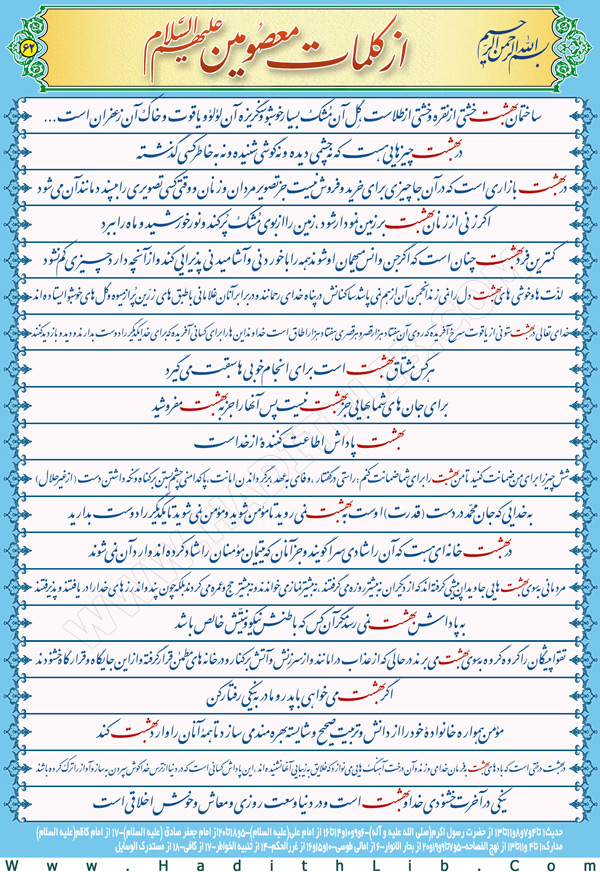 بسم الله الرحمن الرحیم
از کلمات معصومین علیهم السلام
۶۲
ساختمان بهشت خشتی از نقره و خشتی از طلاست، گِل آن مُشک بسیار خوشبو و سنگریزه آن لؤلؤ و یاقوت و خاک آن زعفران است...
در بهشت چیزهایی هست که نه چشمی دیده و نه گوشی شنیده و نه به خاطر کسی گذشته
در بهشت بازاری است که در آن جا چیزی برای خرید و فروش نیست جز تصویر مردان و زنان و وقتی کسی تصویری را بپسندد مانند آن می شود
اگر زنی از زنان بهشت بر زمین نمودار شود، زمین را از بوی مُشک پر کند و نور خورشید و ماه را ببرد
کمترین فرد بهشت چنان است که اگر جن و انس میهمان او شوند همه را با خوردنی و آشامیدنی پذیرایی کند و از آنچه دارد چیزی کم نشود
لذت ها و خوشی های بهشت دل را نمی زند انجمن آن از هم نمی پاشد ساکنانش در پناه خدای رحمانند و در برابر آنان غلامانی با طبق های زرین پر از میوه و گل های خوشبو ایستاده اند
خدای تعالی در بهشت ستونی از یاقوت سرخ آفریده که روی آن هفتاد هزار قصر و هر قصری هفتاد هزار اطاق است خداوند این ها را برای کسانی آفریده که برای خدا یکدیگر را دوست بدارند و دید و بازدید کنند
هر کس مشتاق بهشت است برای انجام خوبی ها سبقت می گیرد
برای جان های شما بهایی جز بهشت نیست پس آنها را جز به بهشت مفروشید
بهشت پاداش اطاعت کنندهٔ از خداست
شش چیز را برای من ضمانت کنید تا من بهشت را برای شما ضمانت کنم: راستی در گفتار، وفای به عهد، برگرداندن امانت، پاکدامنی چشم بستن بر گناه و نگه داشتن دست (از غیر حلال)
به خدایی که جان محمد در دست (قدرت) اوست به بهشت نمی روید تا مؤمن شوید و مؤمن نمی شوید تا یکدیگر را دوست بدارید
در بهشت خانه ای هست که آن را شادی سرا گویند و جز آنان که یتیمان مؤمنان را شاد کرده اند وارد آن نمی شوند
مردمانی به سوی بهشت هایی جاویدان پیشی گرفته اند که از دیگران بیشتر روزه می گرفتند، نه بیشتر نماز می خواندند و نه بیشتر حج و عمره می کردند بلکه چون پند و اندرزهای خدا را دریافتند و پذیرفتند
به پاداش بهشت نمی رسد مگر آن کس که باطنش نیکو و نیتش خالص باشد
تقوا پیشگان را گروه گروه به سوی بهشت می برند در حالی که از عذاب در امانند و از سرزنش و آتش بر کنار و در خانه های مطمئن قرار گرفته و از این جایگاه و قرارگاه خشنودند
اگر بهشت می خواهی با پدر و مادر به نیکی رفتار کن
مؤمن همواره خانوادهٔ خود را از دانش و تربیت صحیح و شایسته بهره مند می سازد تا همهٔ آنان را وارد بهشت کند
در بهشت درختی است که بادهای بهشت به فرمان خدای وزند و آن درخت آهنگ هایی می نوازد که خلایق به زیبایی آنها نشنیده اند، این پاداش کسانی است که در دنیا از ترس خدا گوش سپردن به ساز و آواز را ترک کرده باشند
نیکی در آخرت خشنودی خدا و بهشت است و در دنیا وسعت روزی و معاش و خوش اخلاقی است
www.HadithLib.com
Www.HadithLib.Com